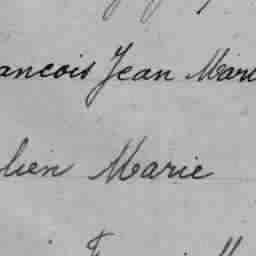 ancois Jean Mari
lien Marie